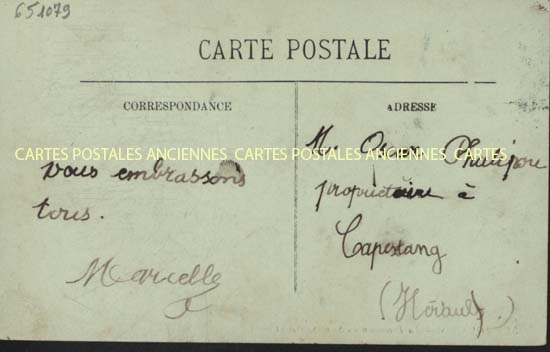 651079
CARTE POSTALE
CORRESPONDANCE
ADRESSE
CARTES POSTALES ANCIENNES CARTES POSTALES ANCIENNES CARTES
vous embrassons
tous.
Marcelle
Mr
propriétaire à
Capestang
(Hérault.)